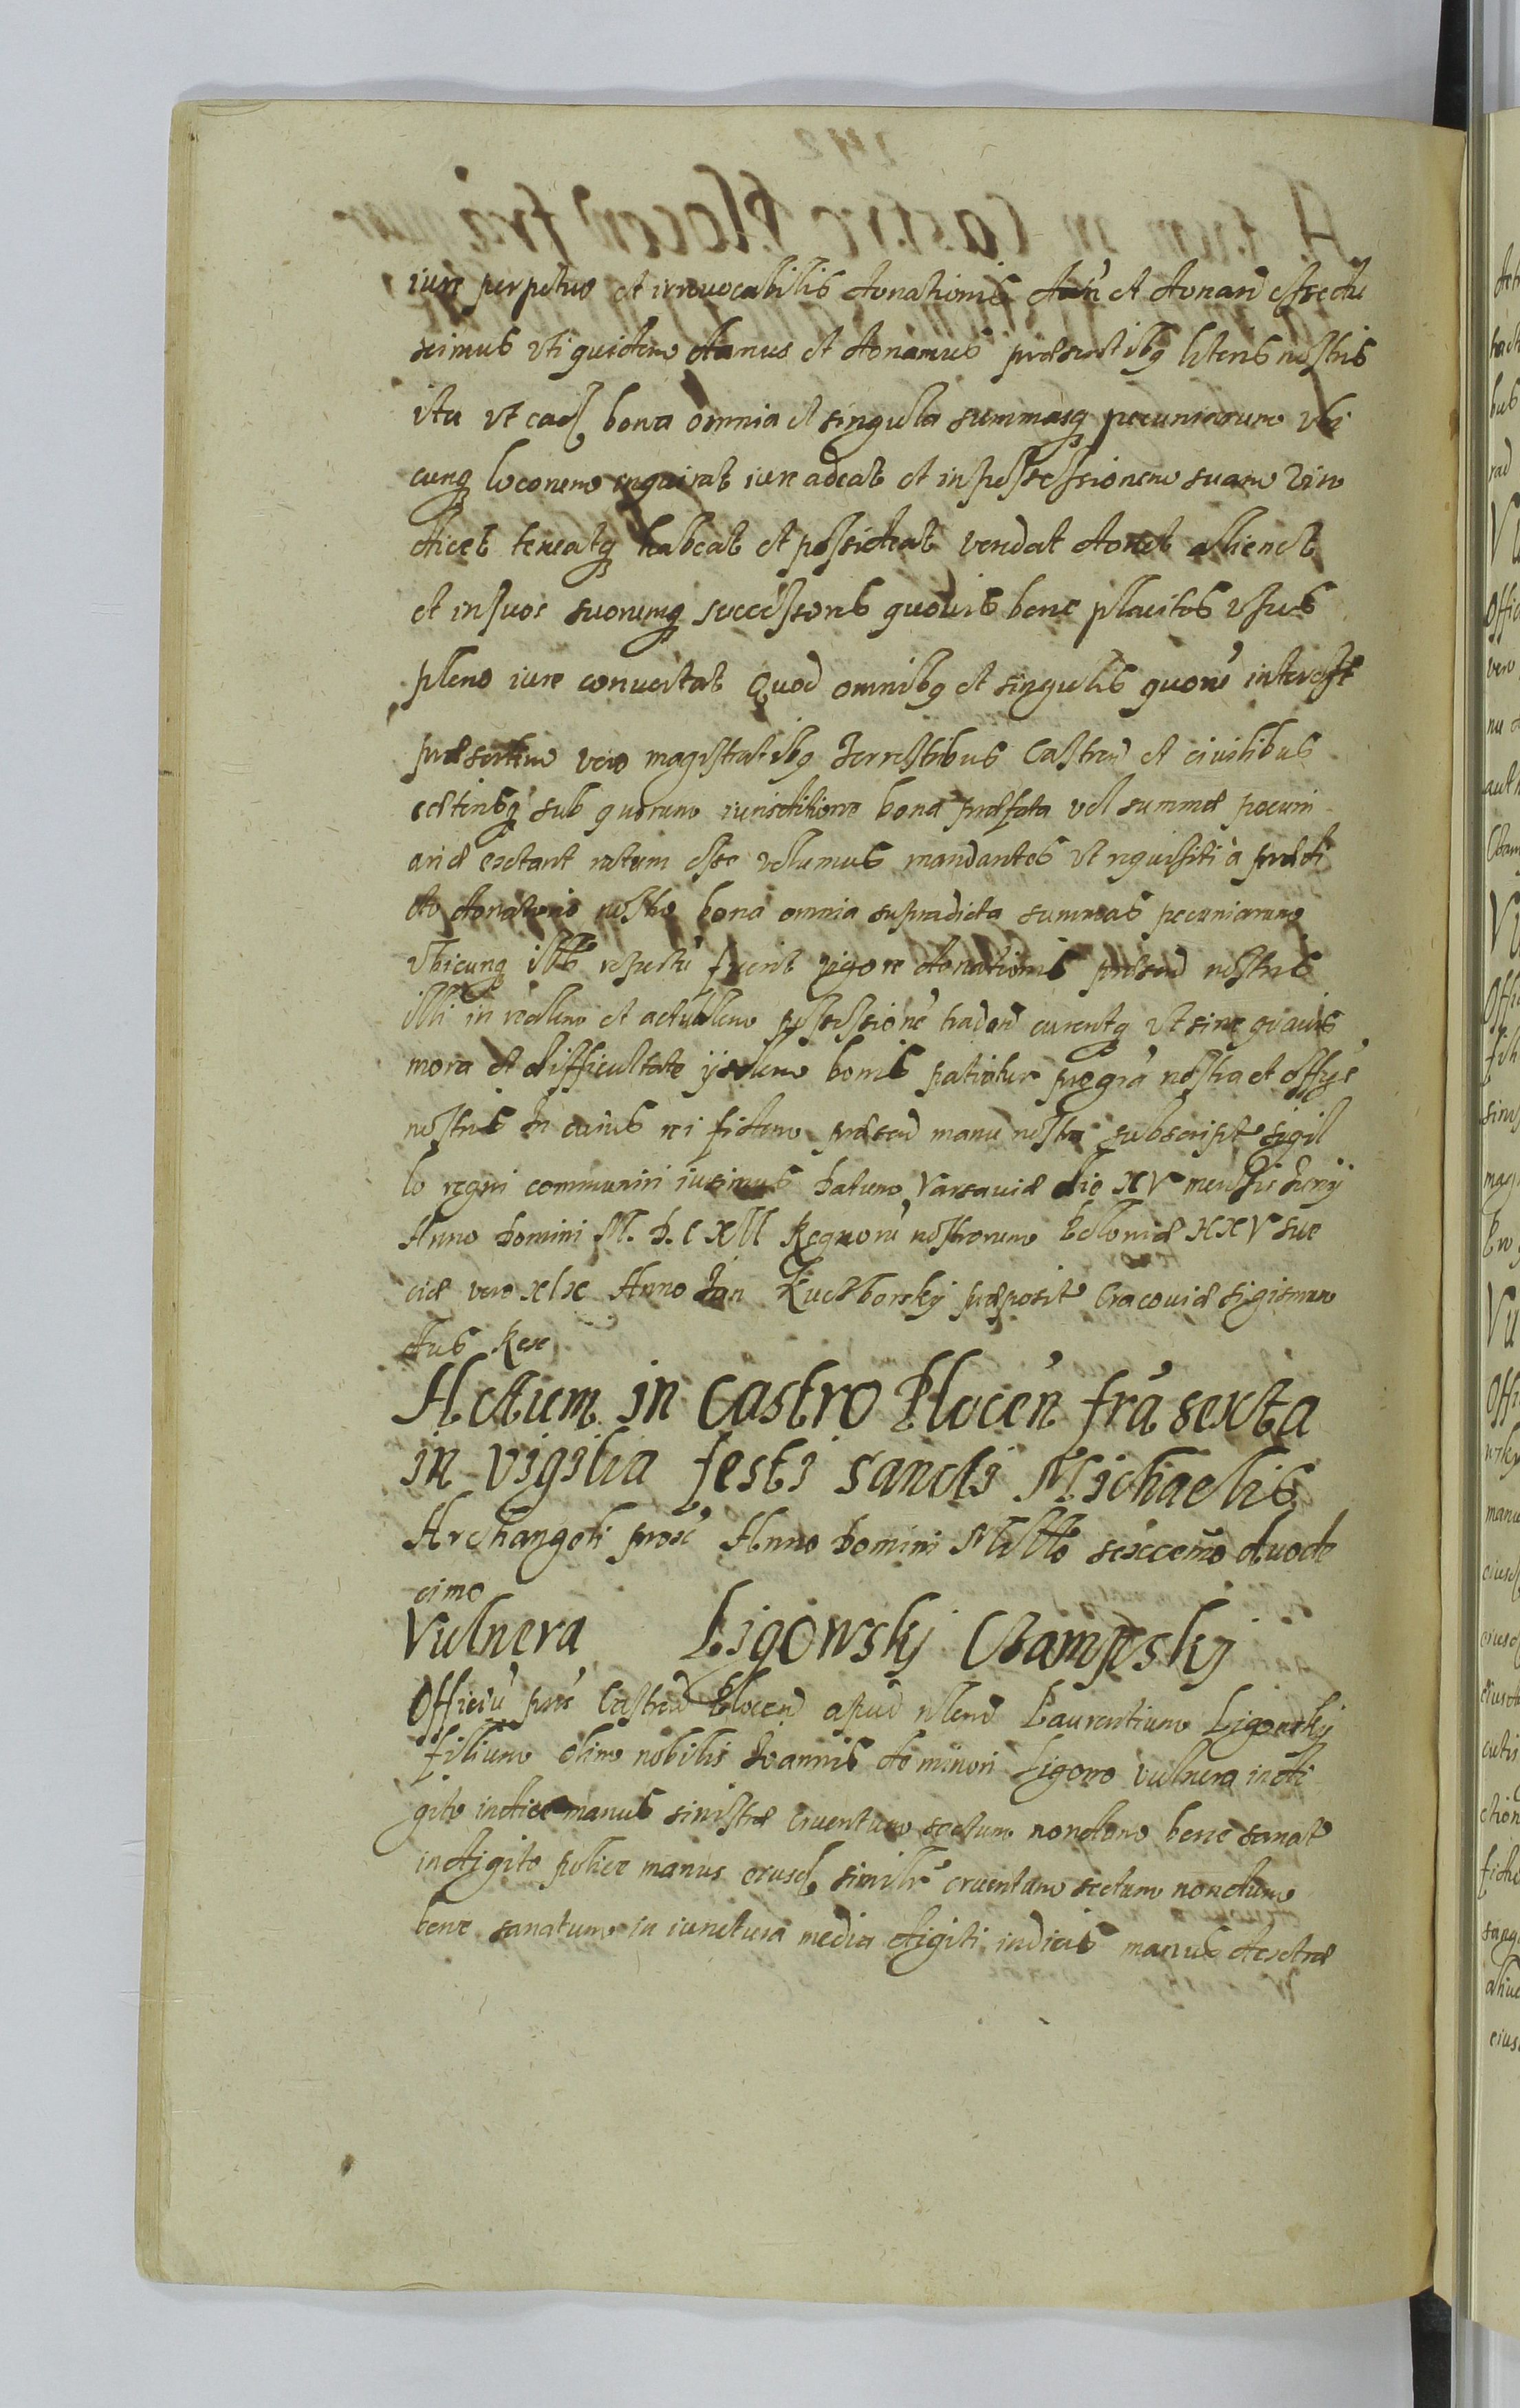 iure perpetuo et irreuocabilis donationis dań et donand esse du
ximus vti quidem damus et donamus præsentibq literis nostris
ita vt ead bona omnia et singula summasq pecuniarum vbi
cunq locorum inquirat iure adeat et in possessionem suam vin
dicet teneatq habeat et possideat vendat donet alienet
et in suos suorumq successores quouis bene placitos vsus
pleno iure conuertat Quod omnibq et singulis quorū interest
præsertim vero magistratibq Terrestribus Castreń et ciuilibus
cæterisq sub quorum iurisditione bona præfata vel summæ pecuni
ariæ extant notum esse volumus mandantes vt requisiti à prædi
cto donatorio nostro bona omnia supradicta summas pecuniarum
vbicunq illæ repertæ fuerint vigore donationis præsen nostris
illi in realem et actualem possessionē tradend curentq vt sine grauis
mora et difficultate ijsdem bonis patiatur pro grā nostra et offijs
nostris In cuius rei fidem præsen manu nostra subscript sigil
lo regni communiri iussimus Datum Varsauiæ die XV mensis Junij
Anno Domini M. D. C XII Regnorū nostrorum Poloniæ XXV Sue
ciæ vero xix Anno Jan Kuczborskij præposit Cracouiæ Sigismun
dus Rex
Actum in Castro Plocen̄ frā sexta
in vigilia festi sancti Michaelis
Archangeli prox̄ Anno Domini Millo sexcenno duode
cimo
Vulnera Ligowskij Czampskij
Officiū pn̄s Castren Plocen apud nlem Laurentium Ligowskij
filium olim nobilis Joannis de minori Ligowo vulnera in di
gito indice manus sinistræ cruentum sectum nondum bene sanat
in digito police manus eiusd similr cruentum sectum nondum
bene sanatum in iunctura media digiti indicis manus dextræ